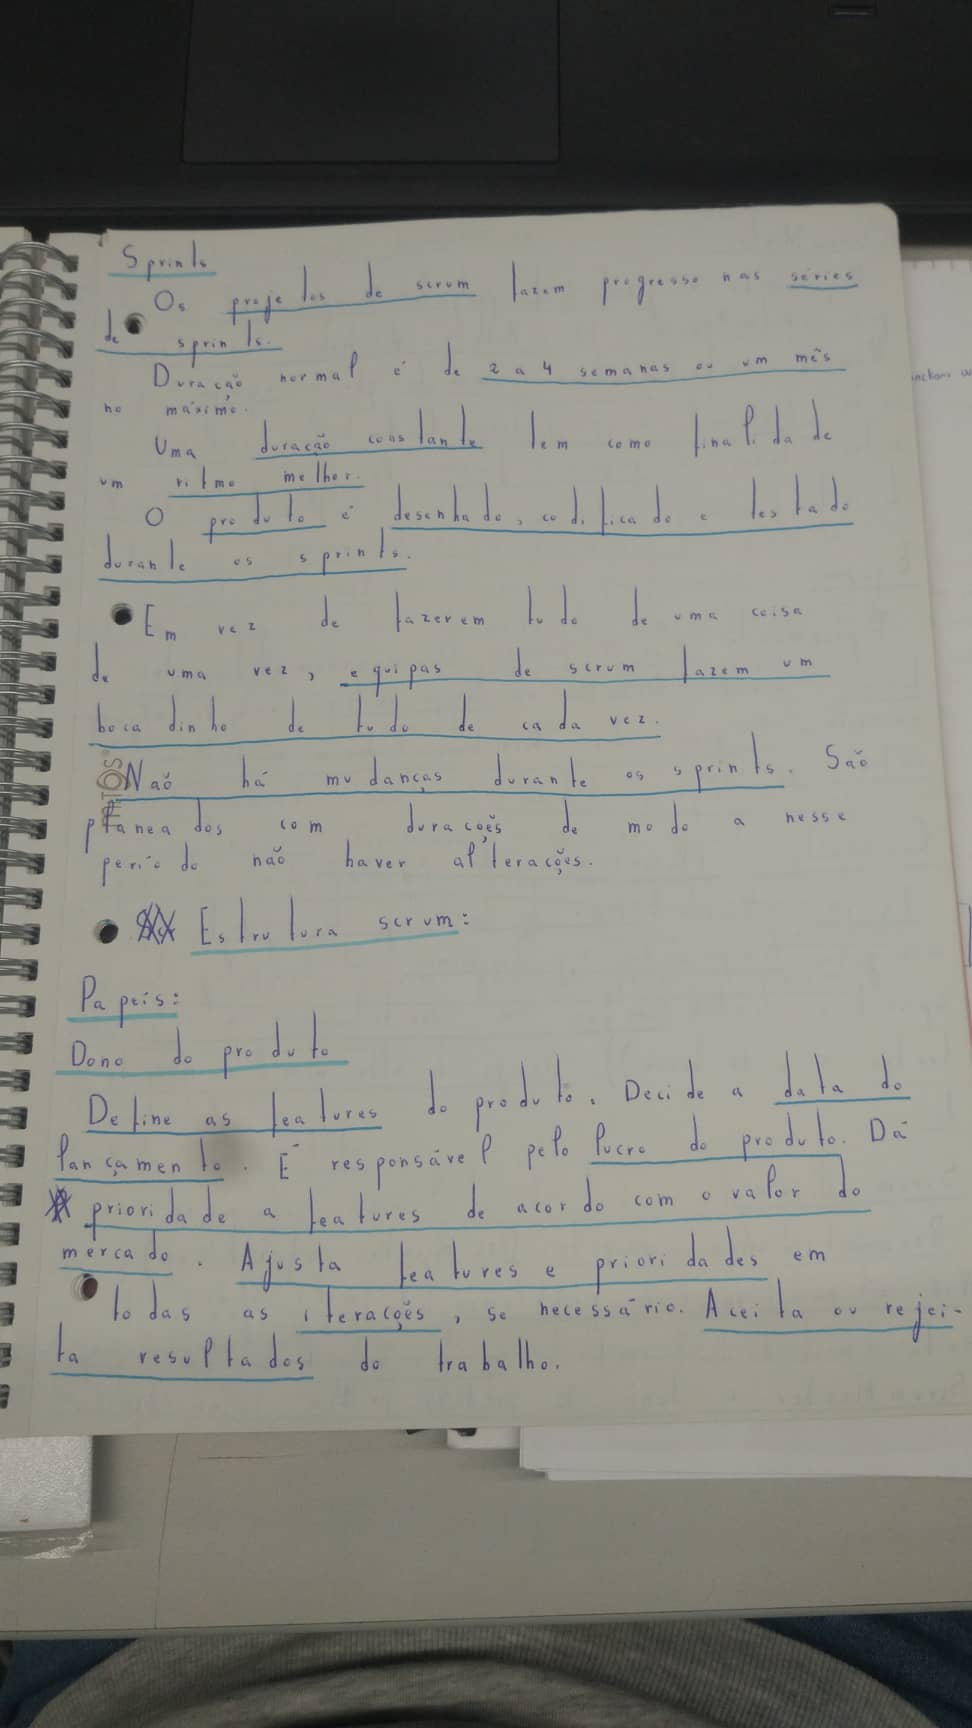 Sprints
Os projetos de scrum fazem progresso nas séries
de sprints.
Duração normal é de 2 a 4 semanas ou um mês
no máximo.
Uma duração constante tem como finalidade
um ritmo melhor.
O produto é desenhado, codificado e testado
durante os sprints.
Em vez de fazerem tudo de uma coisa
de uma vez, equipas de scrum fazem um
bocadinho de tudo de cada vez.
Não há mudanças durante os sprints. São
planeados com durações de modo a nesse
período não haver alterações.
Estrutura scrum:
Papeis:
Dono do produto
Define as features do produto. Decide a data do
lançamento. É responsável pelo lucro do produto. Dá
prioridade a features de acordo com o valor do
mercado. Ajusta features e prioridades em
todas as iterações, se necessário. Aceita ou rejei-
ta resultados do trabalho.